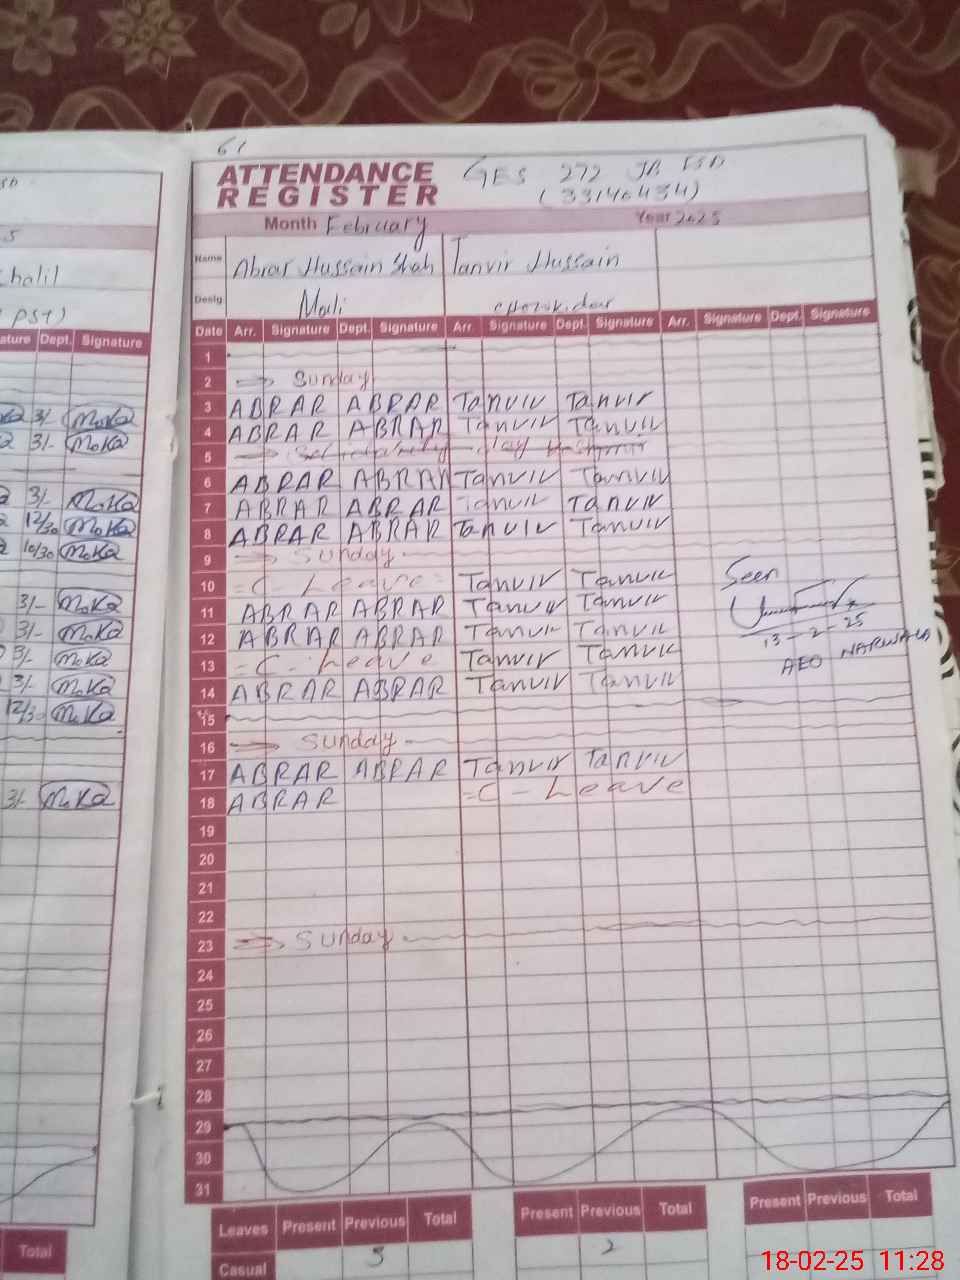 61
ATTENDANCE REGISTER
GES 272 JB FSD
(33140434)
Month February Year 2025
Name Abrar Hussain Shah Tanvir Hussain
Desig. Mali
Date Arr. Signature Dept. Signature Arr. Signature Dept. Signature Arr. Signature Dept. Signature
1
2 Sunday
3 ABRAR ABRAR Tanvir Tanvir
4 ABRAR ABRAR Tanvir Tanvir
5 day Kashmir
6 ABRAR ABRAR Tanvir Tanvir
7 ABRAR ABRAR Tanvir Tanvir
8 ABRAR ABRAR Tanvir Tanvir
9 Sunday
10 = C - Leave = Tanvir Tanvir
11 ABRAR ABRAR Tanvir Tanvir
12 ABRAR ABRAR Tanvir Tanvir
13 = C - Leave Tanvir Tanvir
14 ABRAR ABRAR Tanvir Tanvir
15
16 Sunday
17 ABRAR ABRAR Tanvir Tanvir
18 ABRAR = C - Leave
19
20
21
22
23 Sunday
24
25
26
27
28
29
30
31
Seen
13-2-25
AEO NARWALA
Leaves Present Previous Total Present Previous Total Present Previous Total
Casual 5 2
halil
PST)
ature Dept. Signature
3/- MoKa
3/- MoKa
3/- MoKa
12/30 MoKa
10/30 MoKa
3/- MoKa
3/- MoKa
3/- MoKa
3/- MoKa
12/30 MoKa
3/- MoKa
Total
18-02-25 11:28